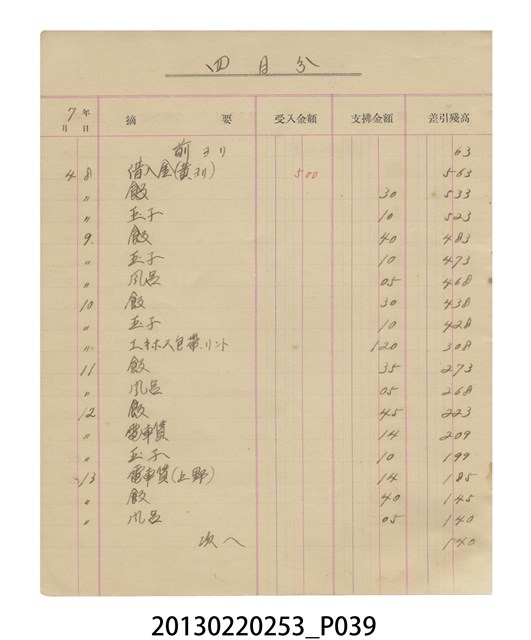 四月分
7年
月 日 摘要 受入金額 支拂金額 差引殘高
前ヨリ 63
4 8 借入金(黄ヨリ) 500 563
〃 飯 30 533
〃 玉子 10 523
9 飯 40 483
〃 玉子 10 473
〃 風呂 05 468
10 飯 30 438
〃 玉子 10 428
〃 エキホス包帯、リント 120 308
11 飯 35 273
〃 風呂 05 268
12 飯 45 223
〃 電車賃 14 209
〃 玉子 10 199
13 電車賃(上野) 14 185
〃 飯 40 145
〃 風呂 05 140
次へ 140
20130220253_P039